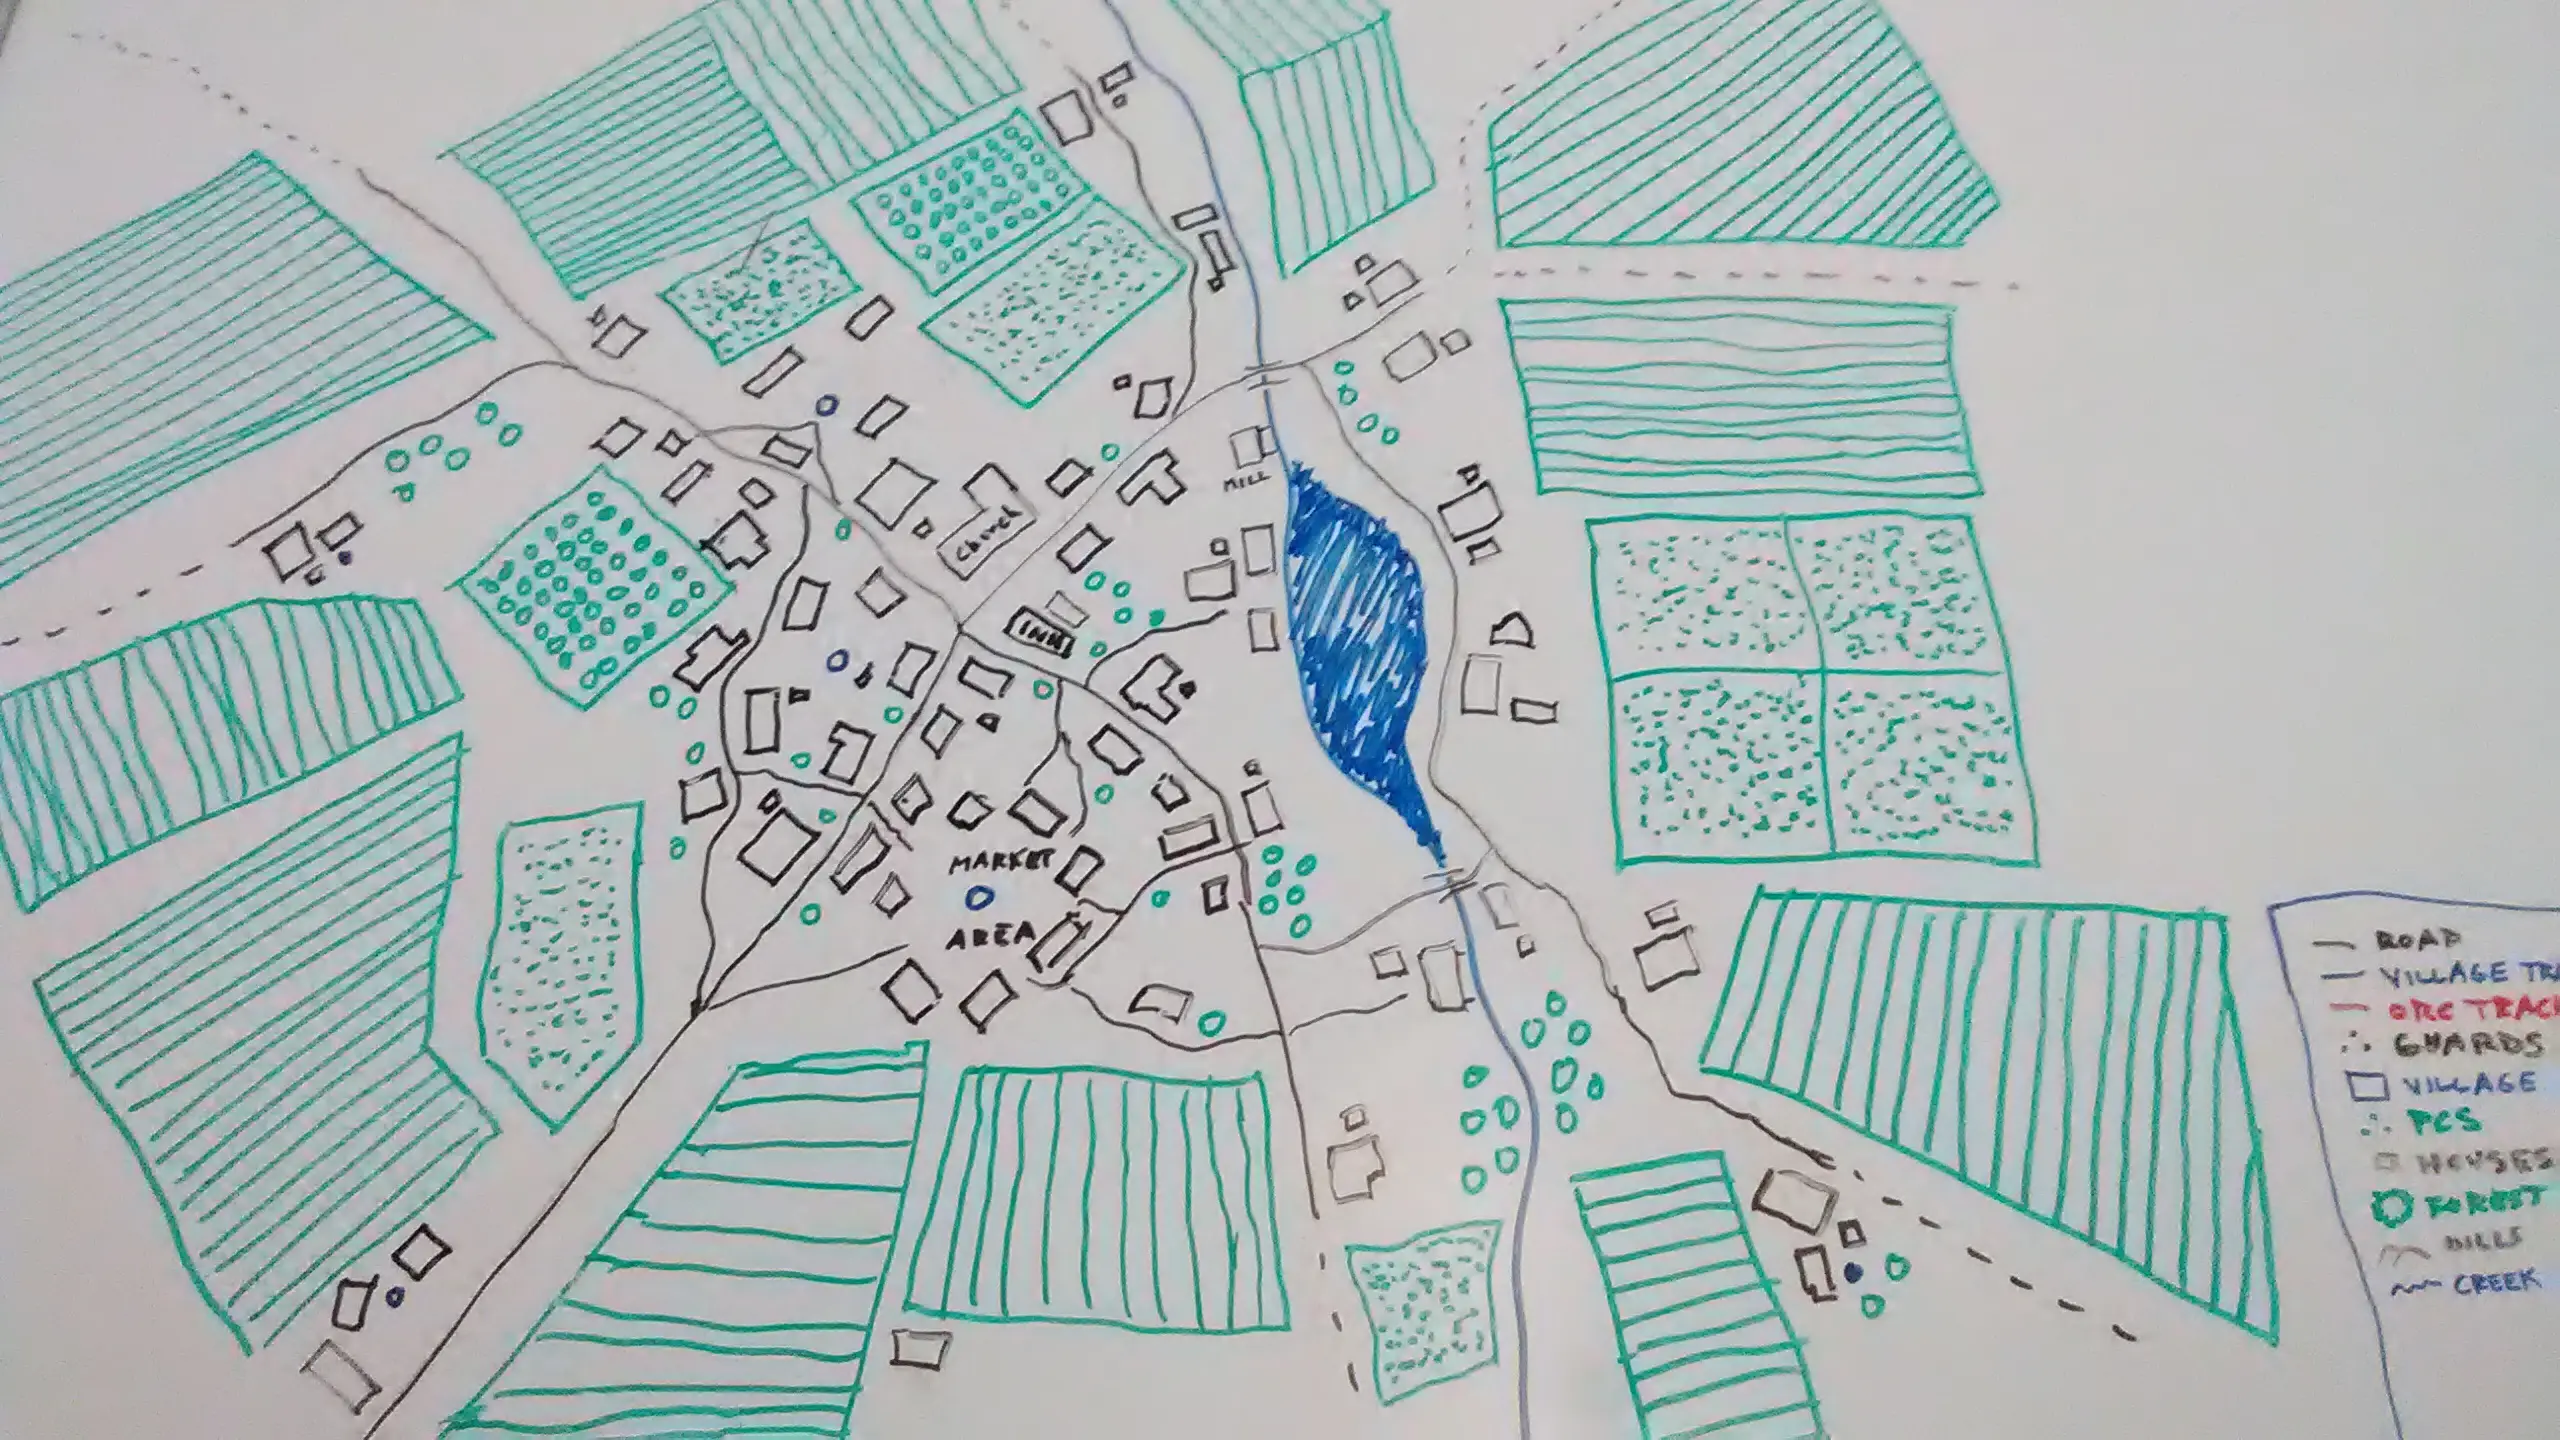 MILL
Church
INN
MARKET
AREA
ROAD
VILLAGE TRA
ORC TRACK
GUARDS
VILLAGE
PCS
HOUSES
FOREST
HILLS
CREEK